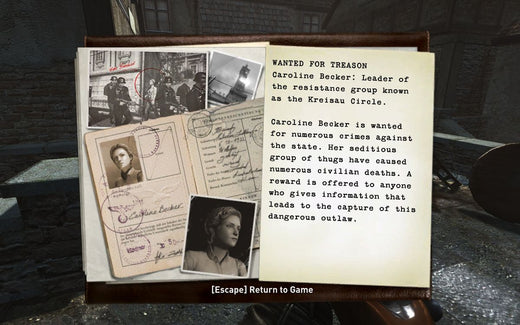 WANTED FOR TREASON
Caroline Becker: Leader of
the resistance group known
as the Kreisau Circle.
Caroline Becker is wanted
for numerous crimes against
the state. Her seditious
group of thugs have caused
numerous civilian deaths. A
reward is offered to anyone
who gives information that
leads to the capture of this
dangerous outlaw.
Caroline Becker
[Escape] Return to Game